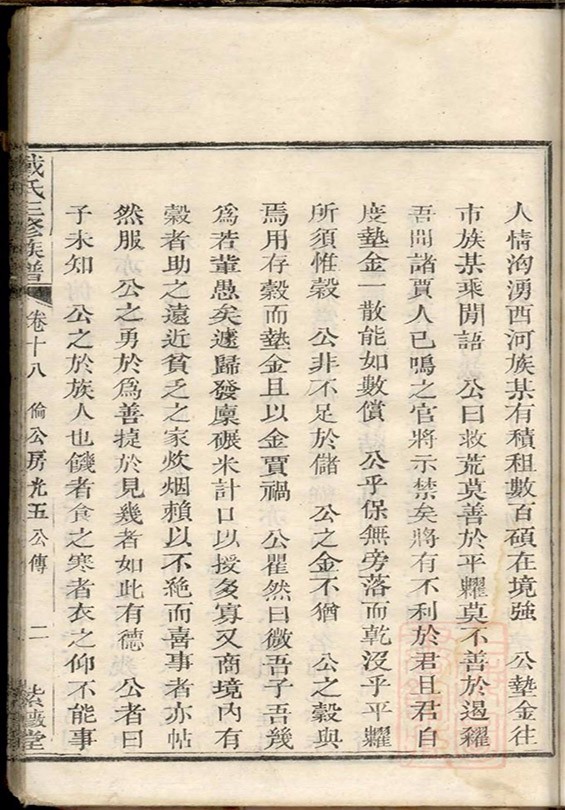 人情洶湧西河族某有積租數百碩在境強　公墊金往
市族某乘閒語　公曰救荒莫善於平糶莫不善於遏糴
吾聞諸賈人已鳴之官將示禁矣將有不利於君且君自
度墊金一散能如數償　公乎保無旁落而乾沒乎平糶
所須惟穀　公非不足於儲　公之金不猶　公之穀與
焉用存穀而墊金且以金賈禍　公瞿然曰微吾子吾幾
為若輩愚矣遽歸發廩碾米計口以授多寡又商境內有
穀者助之遠近貧乏之家炊烟賴以不絶而喜事者亦帖
然服　公之勇於為善捷於見幾者如此有德　公者曰
子未知　公之於族人也饑者食之寒者衣之仰不能事
戴氏三修族譜　卷十八　倫公房光五公傳　二　紫　堂